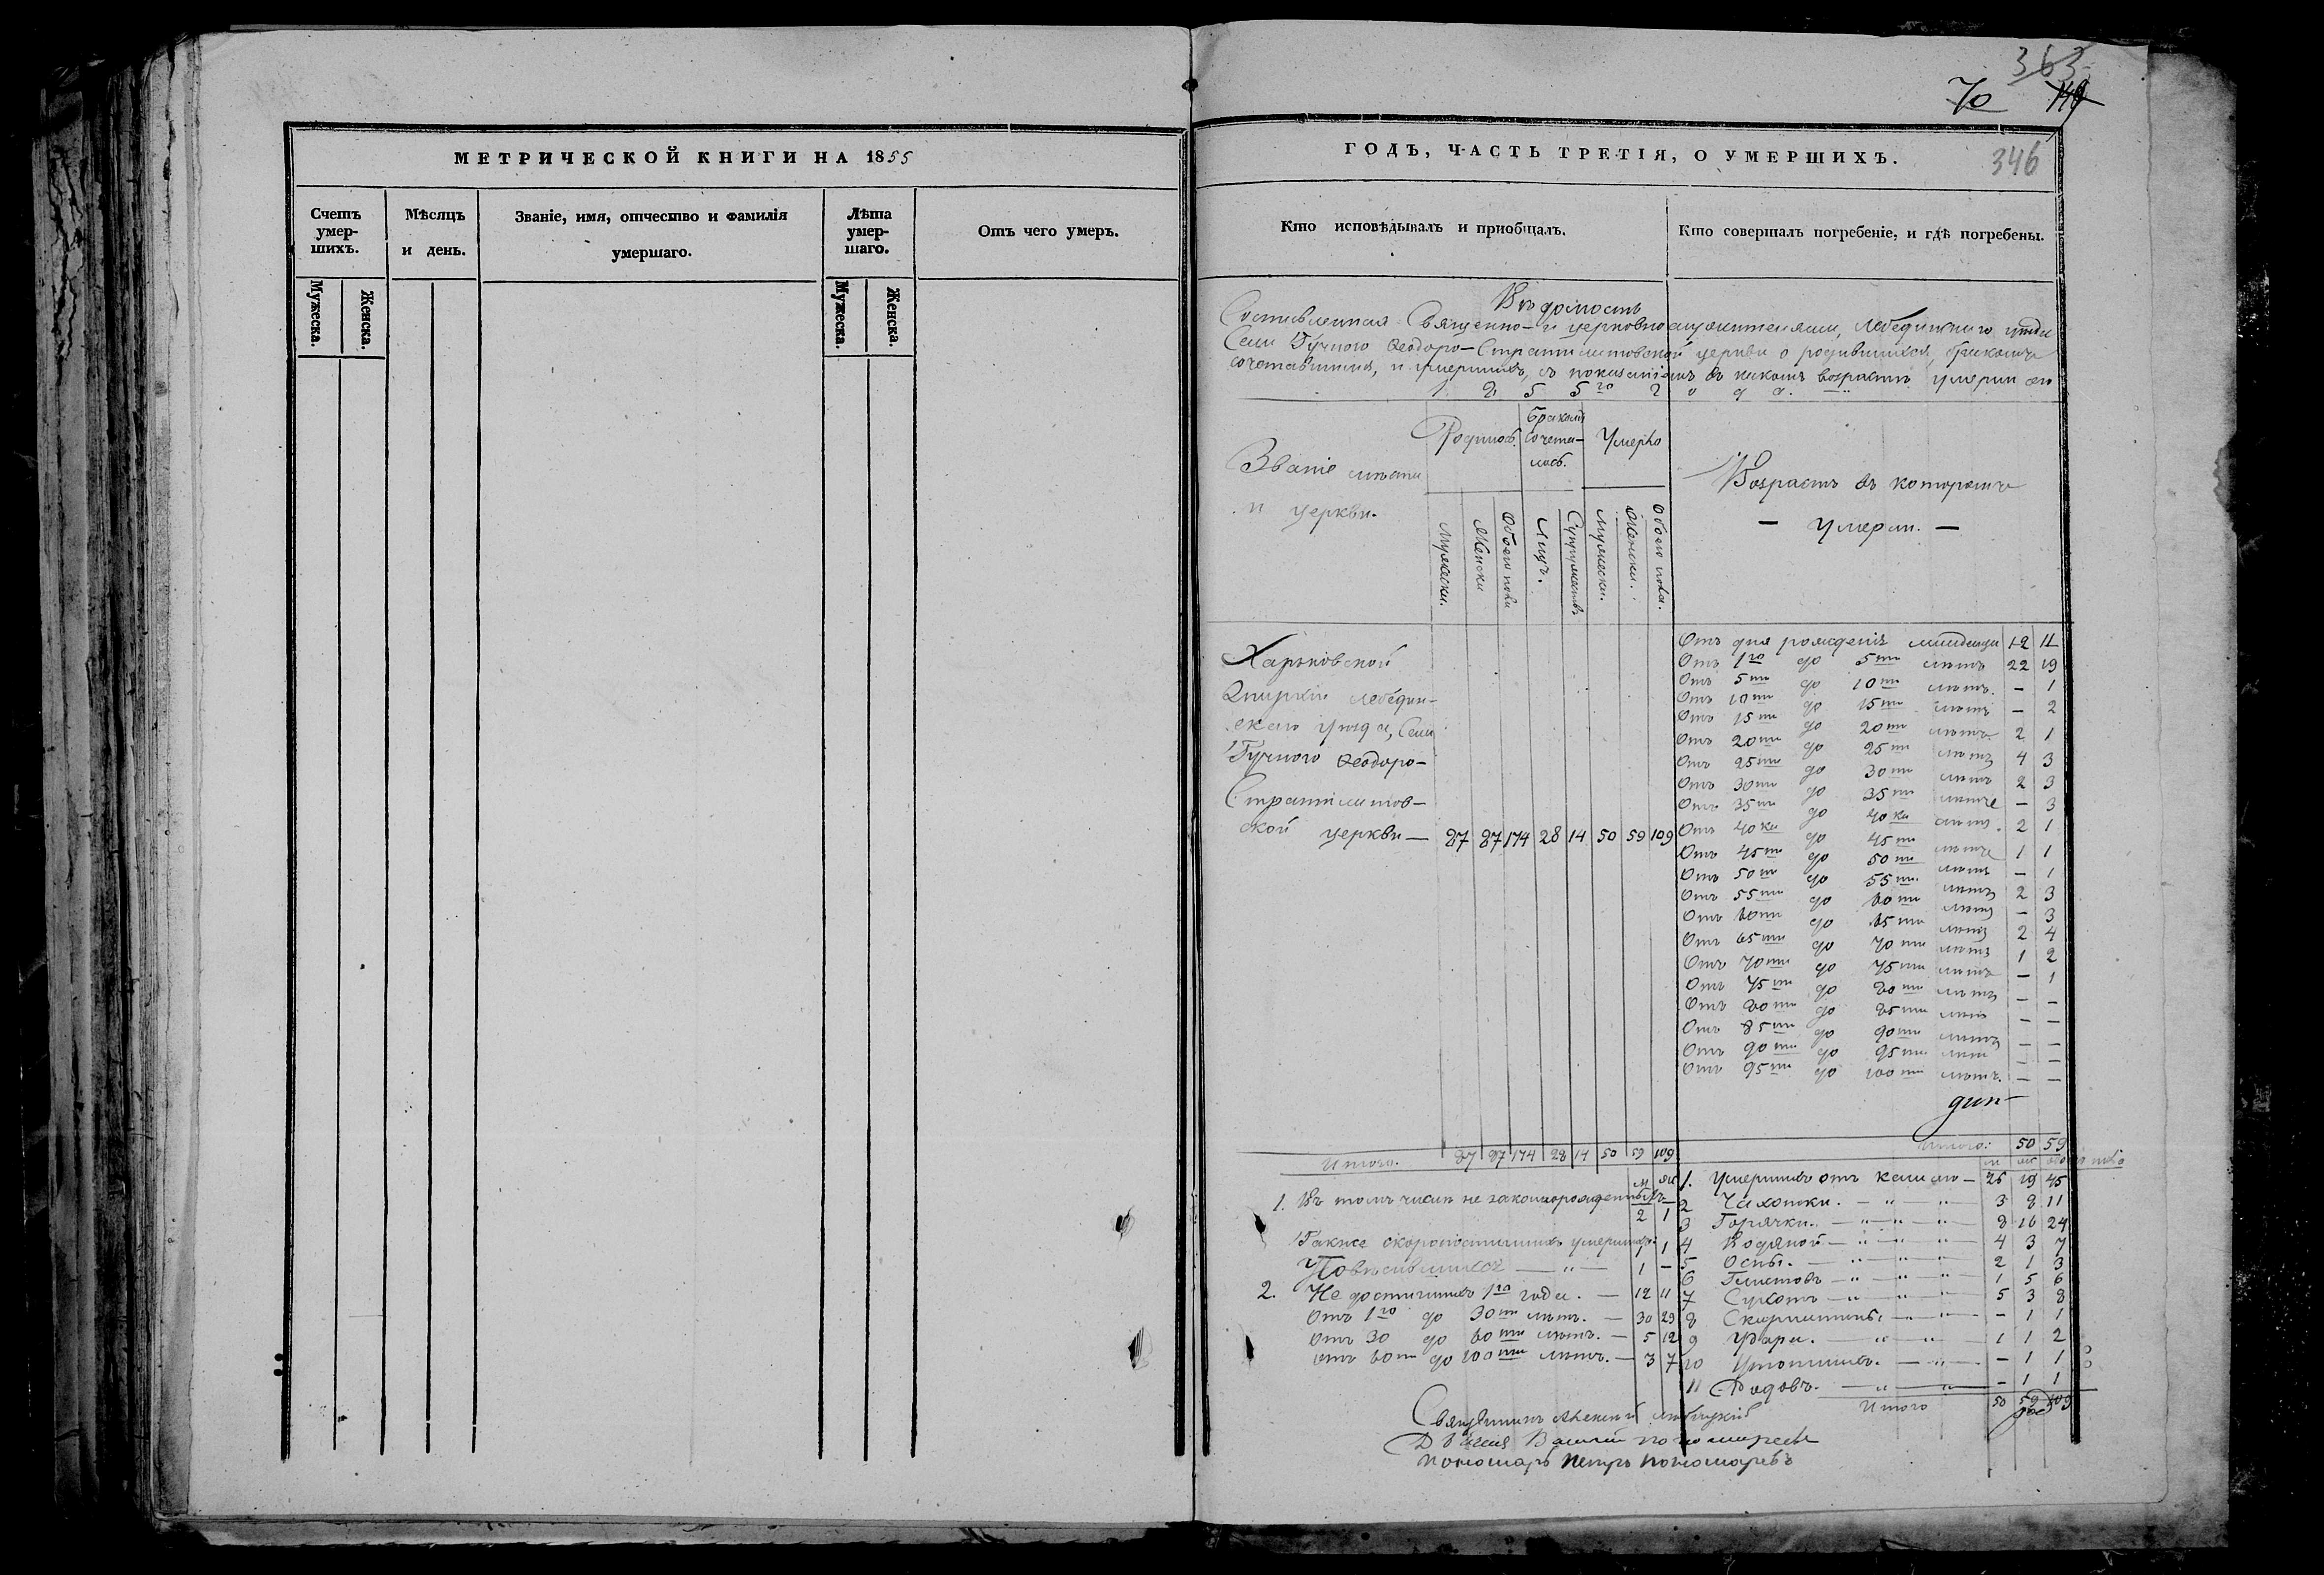 МЕТРИЧЕСКОЙ КНИГИ НА 1855
Счетъ умер-шихъ.
Мѣсяцъ и день.
Званіе, имя, отчество и фамилія умершаго.
Лѣта умер-шаго.
Отъ чего умеръ.
Мужеска.
Женска.
Мужеска.
Женска.
363
70
ГОДЪ, ЧАСТЬ ТРЕТІЯ, О УМЕРШИХЪ.
346
Кто исповѣдывалъ и пріобщалъ.
Кто совершалъ погребеніе, и гдѣ погребены.
Вѣдомость
Составленная Священно- и церковнослужителями, Лебединскаго уѣзда
Села Тучного Ѳеодоро-Стратилатовской церкви о родившихся, бракомъ
сочетавшихся, и умершихъ, съ показаніемъ въ какомъ возрастѣ умерли
1855го года.
Званіе мѣста
и церкви.
Родилось.
Бракомъ
сочета-
лось.
Умерло
Возрастъ въ которомъ
— умерли. —
Мужески.
Женски
Обоего пола
Лицъ.
Супружествъ
Мужески.
Женски.
Обоего пола.
Харьковской
Епархіи Лебедин-
скаго уѣзда, Села
Тучного Ѳеодоро-
Стратилатов-
ской церкви — 87 87 174 28 14 50 59 109
Отъ дня рожденія младенцы 12 11
Отъ 1го до 5ти лѣтъ 22 19
Отъ 5ти до 10ти лѣтъ. — 1
Отъ 10ти до 15ти лѣтъ — 2
Отъ 15ти до 20ти лѣтъ 2 1
Отъ 20ти до 25ти лѣтъ 4 3
Отъ 25ти до 30ти лѣтъ 2 3
Отъ 30ти до 35ти лѣтъ — 3
Отъ 35ти до 40ка лѣтъ. 2 1
Отъ 40ка до 45ти лѣтъ 1 1
Отъ 45ти до 50ти лѣтъ — 1
Отъ 50ти до 55ти лѣтъ 2 3
Отъ 55ти до 60ти лѣтъ — 3
Отъ 60ти до 65ти лѣтъ 2 4
Отъ 65ти до 70ти лѣтъ 1 2
Отъ 70ти до 75ти лѣтъ — 1
Отъ 75ти до 80ти лѣтъ — —
Отъ 80ти до 85ти лѣтъ — —
Отъ 85ти до 90ти лѣтъ — —
Отъ 90ти до 95ти лѣтъ — —
Отъ 95ти до 100ти лѣтъ. — —
Итого: 50 59
Итого. 87 87 174 28 14 50 59 109
м ж
1. Въ томъ числѣ не законнорожденныхъ — 2 1
Также скоропостижно умершихъ 1 1
Повѣсившихся — " — 1 —
2. Не достигшихъ 1го года. — 12 11
Отъ 1го до 30ти лѣтъ. — 30 29
Отъ 30 до 60ти лѣтъ. — 5 12
Отъ 60ти до 100ти лѣтъ. — 3 7
1. Умершихъ отъ кашлю — 26 19 45
2 Чахотки. — " — " 3 8 11
3 Горячки. — " — " 8 16 24
4 Водяной — " — " 4 3 7
5 Оспы. — " — " 2 1 3
6 Глистовъ — " — " 1 5 6
7 Сухотъ — " — " 5 3 8
8 — " — " — 1 1
9 Удара. — " — " 1 1 2
10 Утопшихъ. — " — — 1 1
11 Родовъ. — " — " — 1 1
Итого 50 59 109
Священникъ Алексій Любицкій
Василій Пономаревъ
Пономарь Петръ Пономаревъ